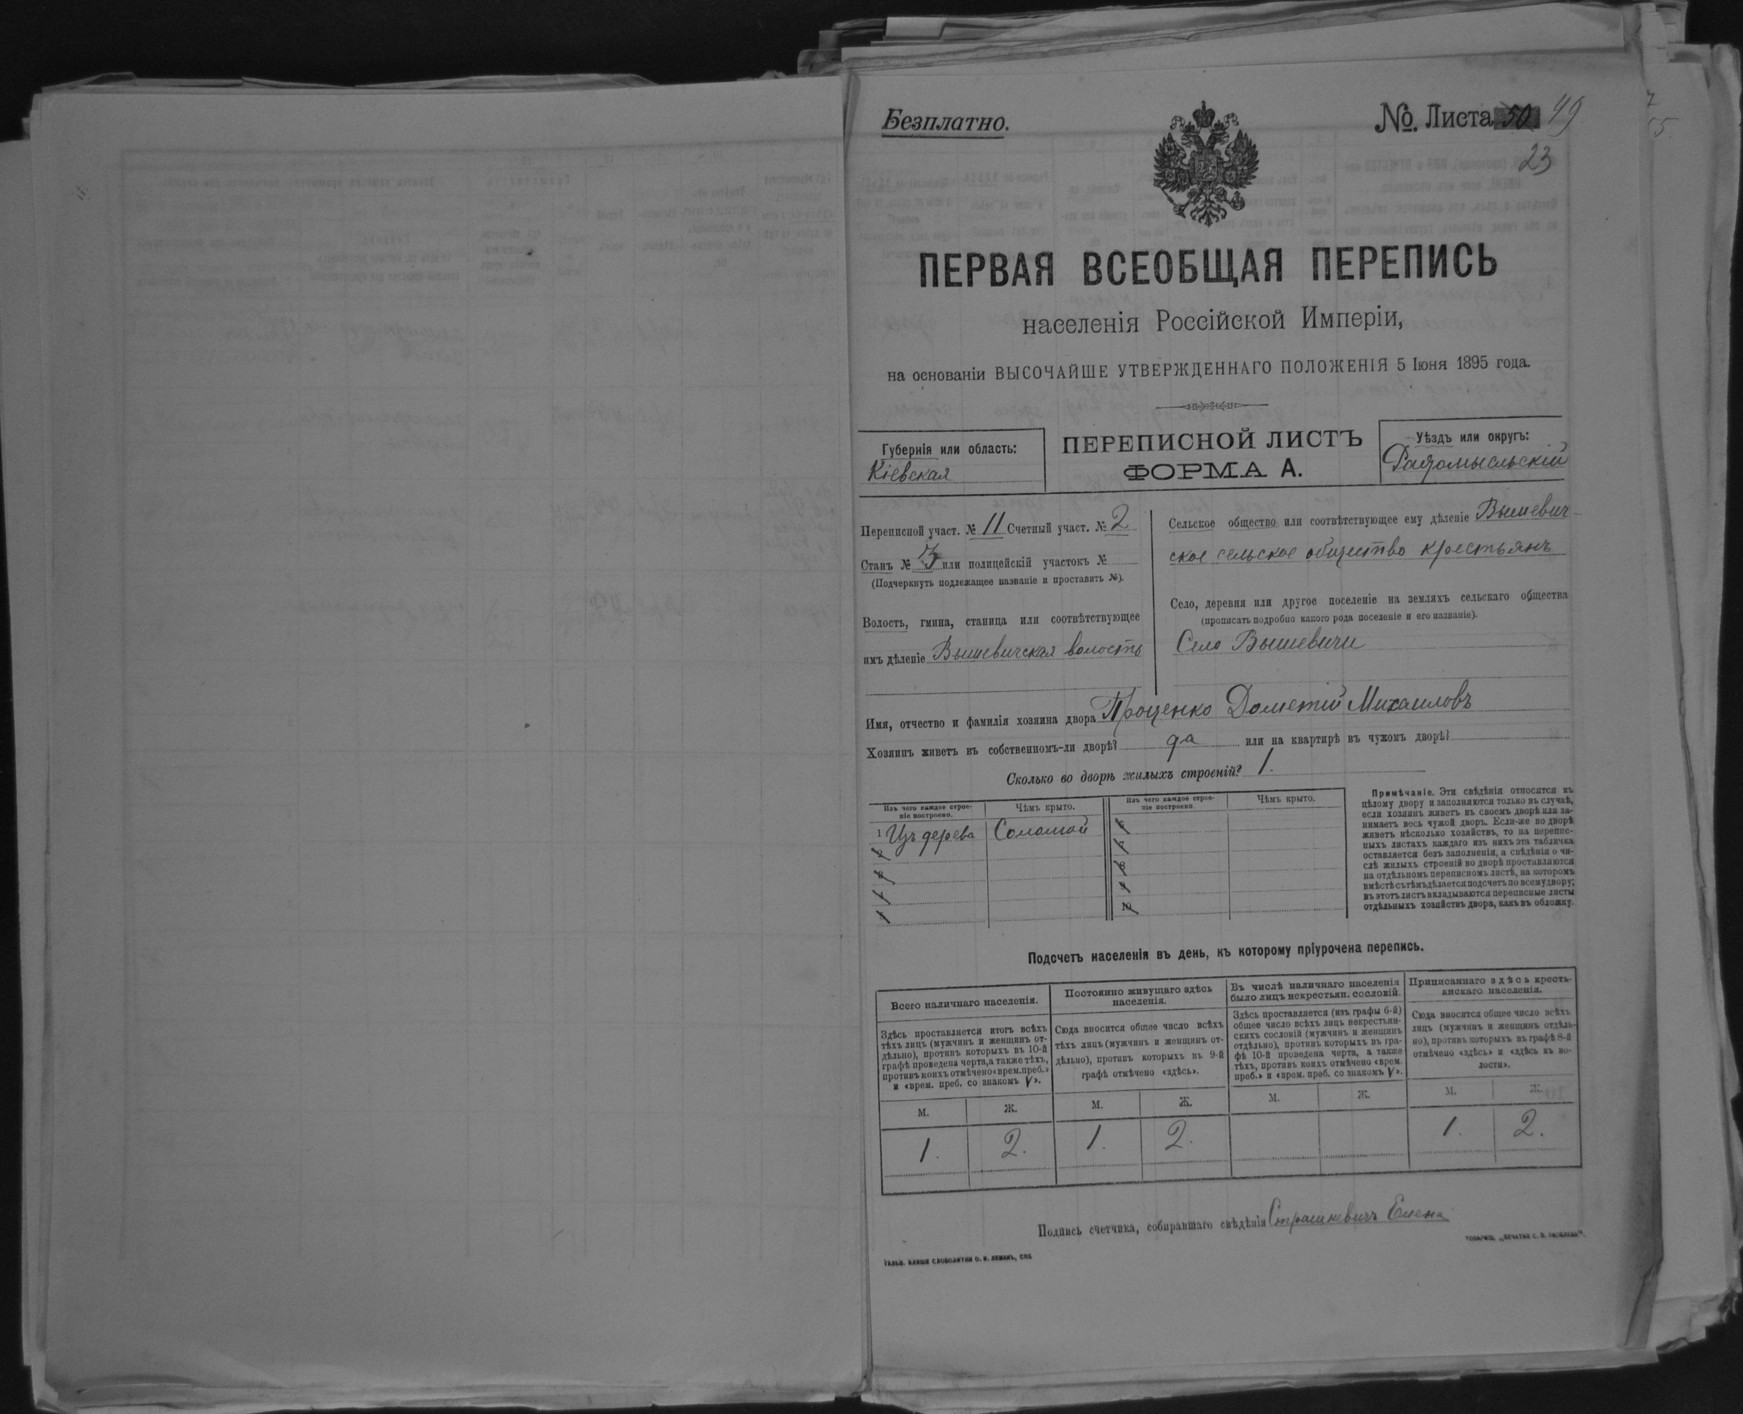 Безплатно.
№. Листа 50 49
23
ПЕРВАЯ ВСЕОБЩАЯ ПЕРЕПИСЬ
населенія Россійской Имперіи,
на основаніи ВЫСОЧАЙШЕ УТВЕРЖДЕННАГО ПОЛОЖЕНІЯ 5 Іюня 1895 года.
Губернія или область:
Кіевская
ПЕРЕПИСНОЙ ЛИСТЪ
ФОРМА А.
Уѣздъ или округъ:
Радомысльскій
Переписной участ. № 11 Счетный участ. № 2
Станъ № 3 или полицейскій участокъ №
(Подчеркнуть подлежащее названіе и проставить №).
Волость, гмина, станица или соотвѣтствующее
имъ дѣленіе Вышевичская волость
Сельское общество или соотвѣтствующее ему дѣленіе Вышевич-
ское сельское общество крестьянъ
Село, деревня или другое поселеніе на земляхъ сельскаго общества
(прописать подробно какого рода поселеніе и его названіе).
Село Вышевичи
Имя, отчество и фамилія хозяина двора Проценко Дометій Михаиловъ
Хозяинъ живетъ въ собственномъ-ли дворѣ? да или на квартирѣ въ чужомъ дворѣ?
Сколько во дворѣ жилыхъ строеній? 1.
Изъ чего каждое строе-
ніе построено.
Чѣмъ крыто.
Изъ чего каждое строе-
ніе построено.
Чѣмъ крыто.
1 Изъ дерева Соломой
Примѣчаніе. Эти свѣдѣнія относятся къ
цѣлому двору и заполняются только въ случаѣ,
если хозяинъ живетъ въ своемъ дворѣ или за-
нимаетъ весь чужой дворъ. Если-же во дворѣ
живетъ нѣсколько хозяйствъ, то на перепис-
ныхъ листахъ каждаго изъ нихъ эта табличка
оставляется безъ заполненія, а свѣдѣнія о чи-
слѣ жилыхъ строеній во дворѣ проставляются
на отдѣльномъ переписномъ листѣ, на которомъ
вмѣстѣ съ тѣмъ дѣлается подсчетъ по всему двору;
въ этотъ листъ вкладываются переписные листы
отдѣльныхъ хозяйствъ двора, какъ въ обложку.
Подсчетъ населенія въ день, къ которому пріурочена перепись.
Всего наличнаго населенія.
Здѣсь проставляется итогъ всѣхъ
тѣхъ лицъ (мужчинъ и женщинъ от-
дѣльно), противъ которыхъ въ 10-й
графѣ проведена черта, а также тѣхъ,
противъ коихъ отмѣчено «врем. преб.»
и «врем. преб. со знакомъ V».
Постоянно живущаго здѣсь
населенія.
Сюда вносится общее число всѣхъ
тѣхъ лицъ (мужчинъ и женщинъ от-
дѣльно), противъ которыхъ въ 9-й
графѣ отмѣчено «здѣсь».
Въ числѣ наличнаго населенія
было лицъ некрестьян. сословій.
Здѣсь проставляется (изъ графы 6-й)
общее число всѣхъ лицъ некрестьян-
скихъ сословій (мужчинъ и женщинъ
отдѣльно), противъ которыхъ въ гра-
фѣ 10-й проведена черта, а также
тѣхъ, противъ коихъ отмѣчено «врем.
преб.» и «врем. преб. со знакомъ V».
Приписаннаго здѣсь кресть-
янскаго населенія.
Сюда вносится общее число всѣхъ
лицъ (мужчинъ и женщинъ отдѣль-
но), противъ которыхъ въ графѣ 8-й
отмѣчено «здѣсь» и «здѣсь къ во-
лости».
М. Ж. М. Ж. М. Ж. М. Ж.
1. 2. 1. 2. 1. 2.
Подпись счетчика, собиравшаго свѣдѣнія Страшкевичъ Елена
ГАЛЬВ. КЛИШИ СЛОВОЛИТНИ О. И. ЛЕМАНЪ, СПБ.
ТОВАРИЩ. „ПЕЧАТНЯ С. П. ЯКОВЛЕВА".